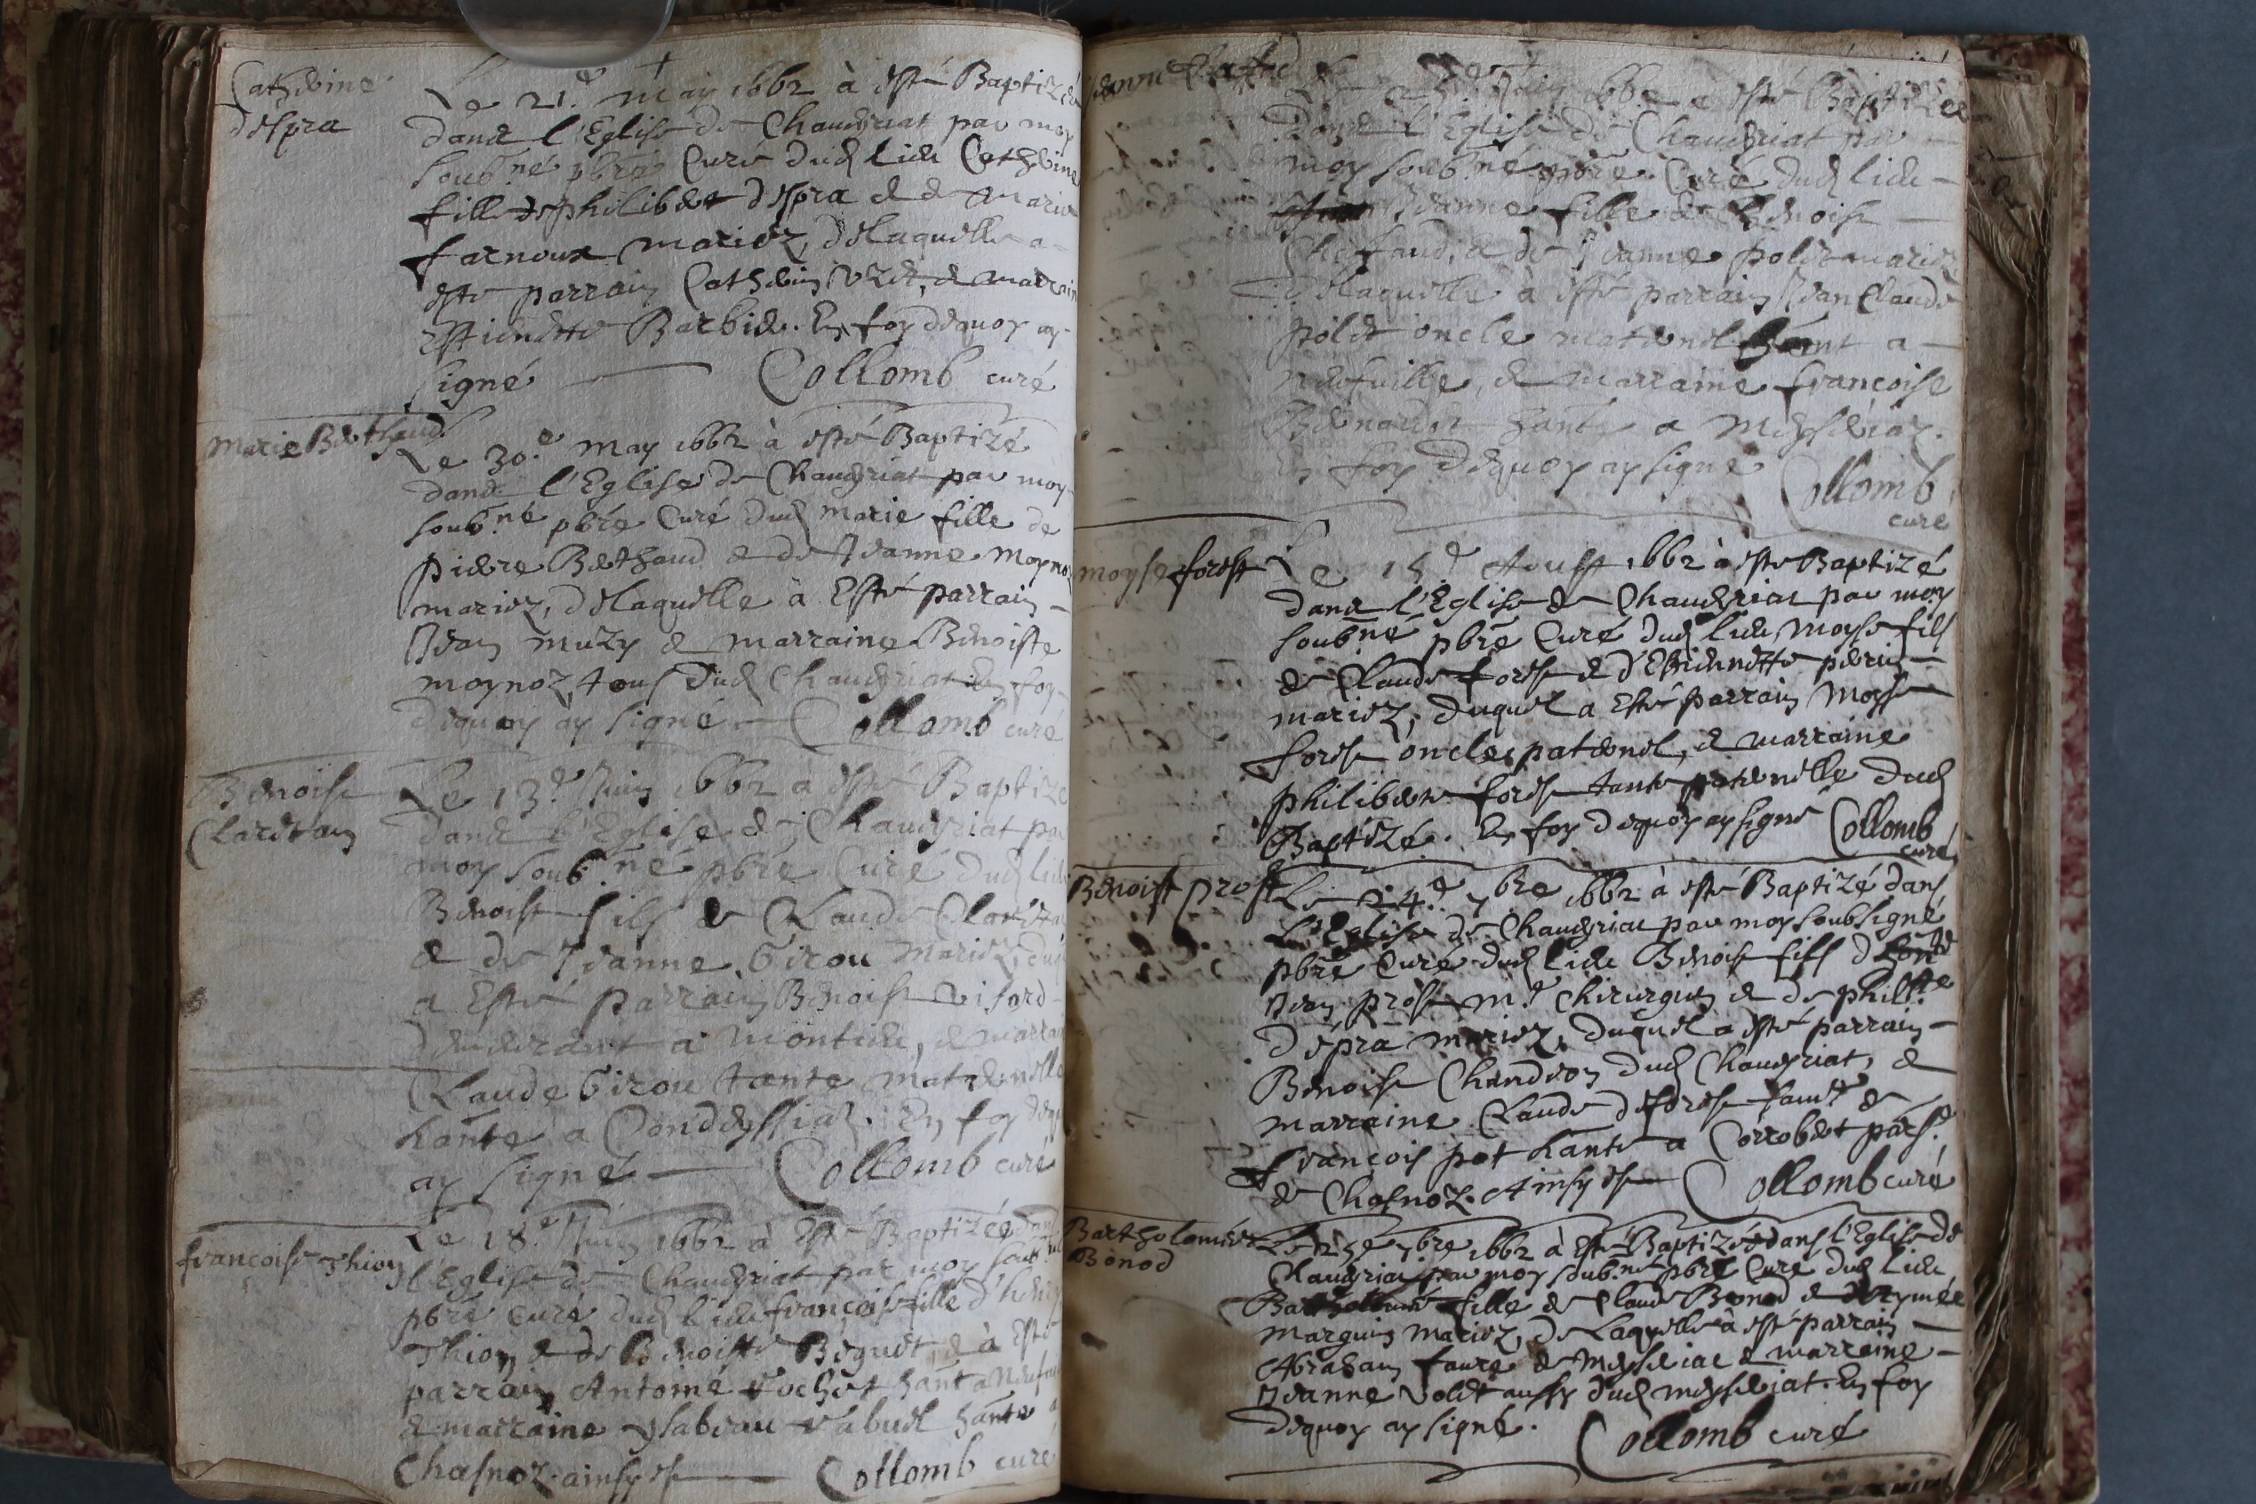 Catherine
despra
Le 21.e may 1662 à esté Baptizée
dans l'Eglise de Chaveyriat par moy
soub.né pbre Curé dud lieu Catherine
fille de philibert despra & de Marie
farnoux mariez, delaquelle a
esté parrain Catherin & marraine
Estiennette Barbier. En foy dequoy ay
signé Collomb curé
Marie Berthaud
Le 30.e may 1662 à esté Baptizé
dans l'Eglise de Chaveyriat par moy
soub.né pbre Curé dud marie fille de
pierre Berthaud & de Jeanne Moynoz
mariez, delaquelle à Esté parrain
Jean muzy & marraine Benoiste
moynoz, tous dud Chaveyriat En foy
dequoy ay signé Collomb curé
Benoist
Clardtain
Le 13.e Juin 1662 a esté Baptizé
dans l'Eglise de Chaveyriat par
moy soub.né pbre Curé dud lieu
Benoist fils de Claude
& de Jeanne Girou Mariez,
a Esté parrain Benoist
demeurant a montieu, & marraine
Claude Girou tante maternelle
hante a Condeyssiaz. En foy dequoy
ay signé Collomb curé
francoise Thion
Le 18.e Juin 1662 à Esté Baptizée dans
l'Eglise de Chaveyriat par moy soub.né
pbre Curé dud lieu francoise fille
Thion & de Benoiste Beguet & à Esté
parrain Antoine Vochet hant a
& marraine ysabeau hante a
Chasnoz. ainsy est Collomb curé
Juin 1662 a esté Baptizée
dans l'Eglise de Chaveyriat par
moy soub.né pbre Curé dud lieu
Jeanne fille de Benoist
& de Jeanne polet mariez
delaquelle à esté parrain Jean Claude
polet oncle maternel hant a
neufville, & marraine francoise
hante a Meyseriaz.
En foy dequoy ay signé Collomb
curé
moyse forest
Le 15.e Aoust 1662 à esté Baptizé
dans l'Eglise de Chaveyriat par moy
soub.né pbre Curé dud lieu, Moyse fils
de Claude forest & d'Estiennette perrin
mariez, duquel a Esté parrain Moyse
forest oncle paternel, & marraine
philiberte forest tante paternelle dud
Baptizé. En foy dequoy ay signé Collomb
curé
Benoist prost
Le 24.e 7bre 1662 à esté Baptizé dans
L'Eglise de Chaveyriat par moy soubsigné
pbre Curé dud lieu Benoist fils d'hon.te
Jean prost m.e Chirurgien & de philb.te
despra mariez, duquel a esté parrain
Benoist Chandron dud Chaveyriat, &
marraine Claude deforest fam.e de
francois pot hante a Corrobert par.se
de Chasnoz. Ainsy est Collomb curé
Bartholomiere
Bonod
Le 25e 7bre 1662 à Esté Baptizée dans l'Eglise de
Chaveyriat par moy soub.né pbre Curé dud lieu
fille de Claude Bonod & d'Aymée
Marguin Mariez, de Laquelle à esté parrain
Abraham faure de Meyseriat & marraine
Jeanne Volet aussy dud meyseriat. En foy
dequoy ay signé. Collomb curé